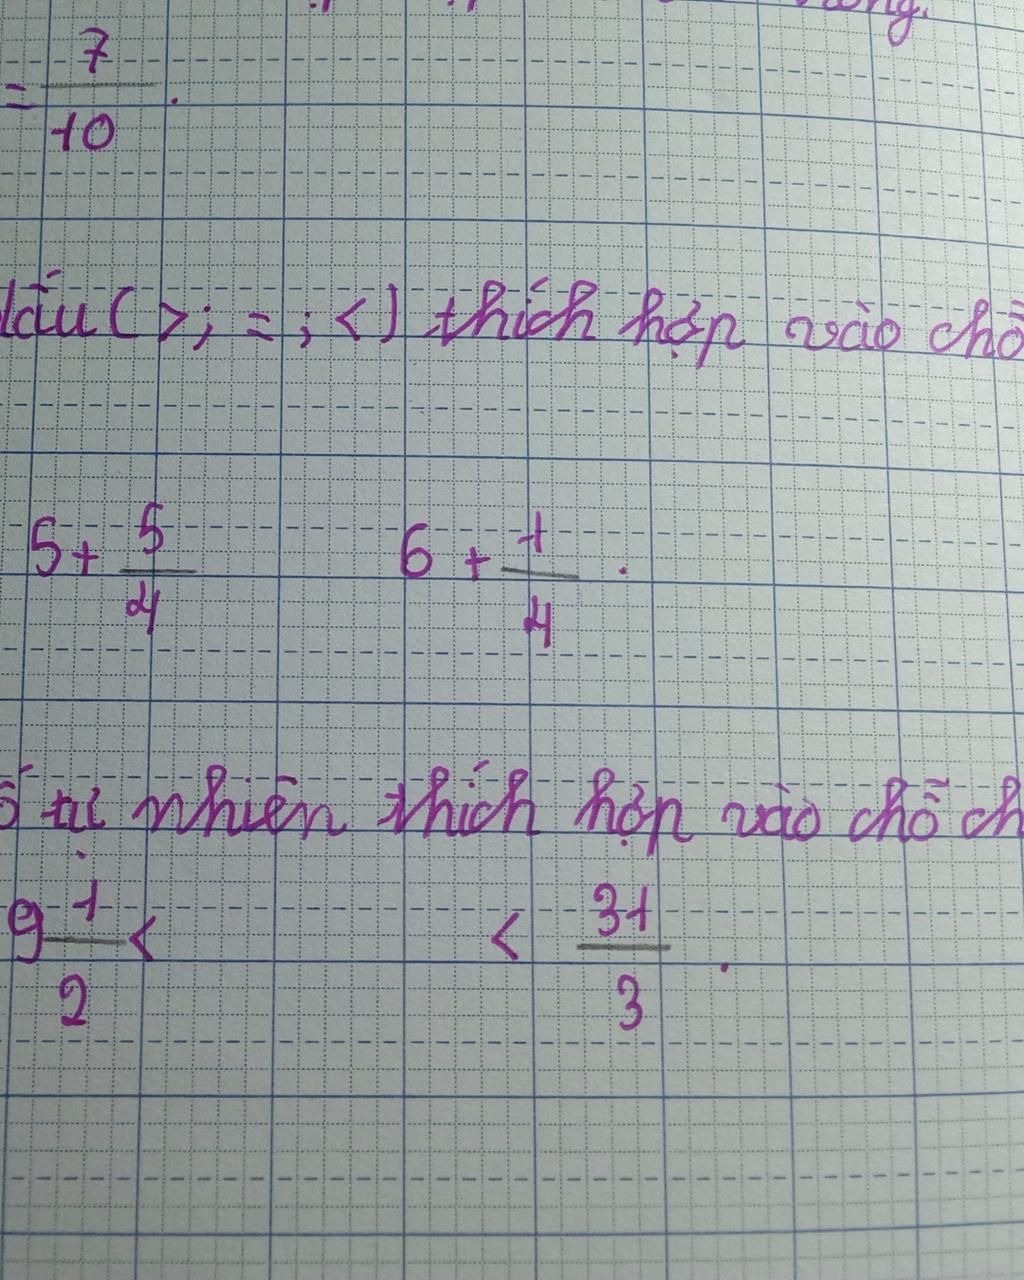 = 7/10 .
dấu ( > ; = ; < ) thích hợp vào chỗ
5 + 5/4 6 + 1/4 .
số tự nhiên thích hợp vào chỗ ch
9 1/2 < < 31/3 .